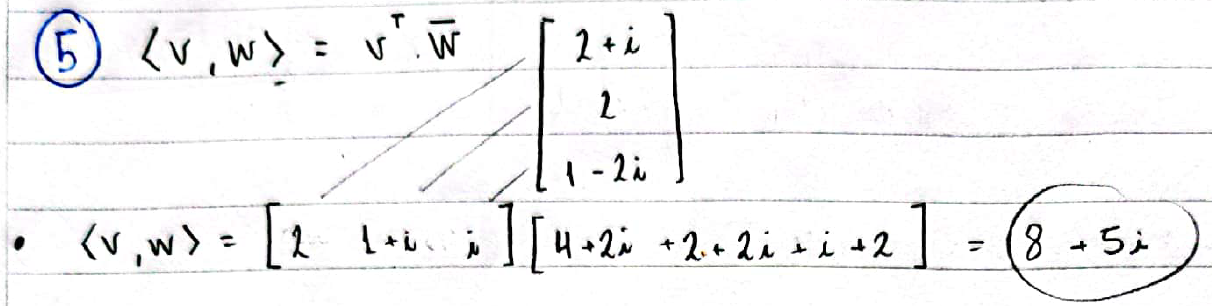 5 ⟨v,w⟩ = vᵀ. w̅
[2+i
2
1-2i]
• ⟨v,w⟩ = [2 1+i i] [4+2i +2+2i+i+2] = 8+5i